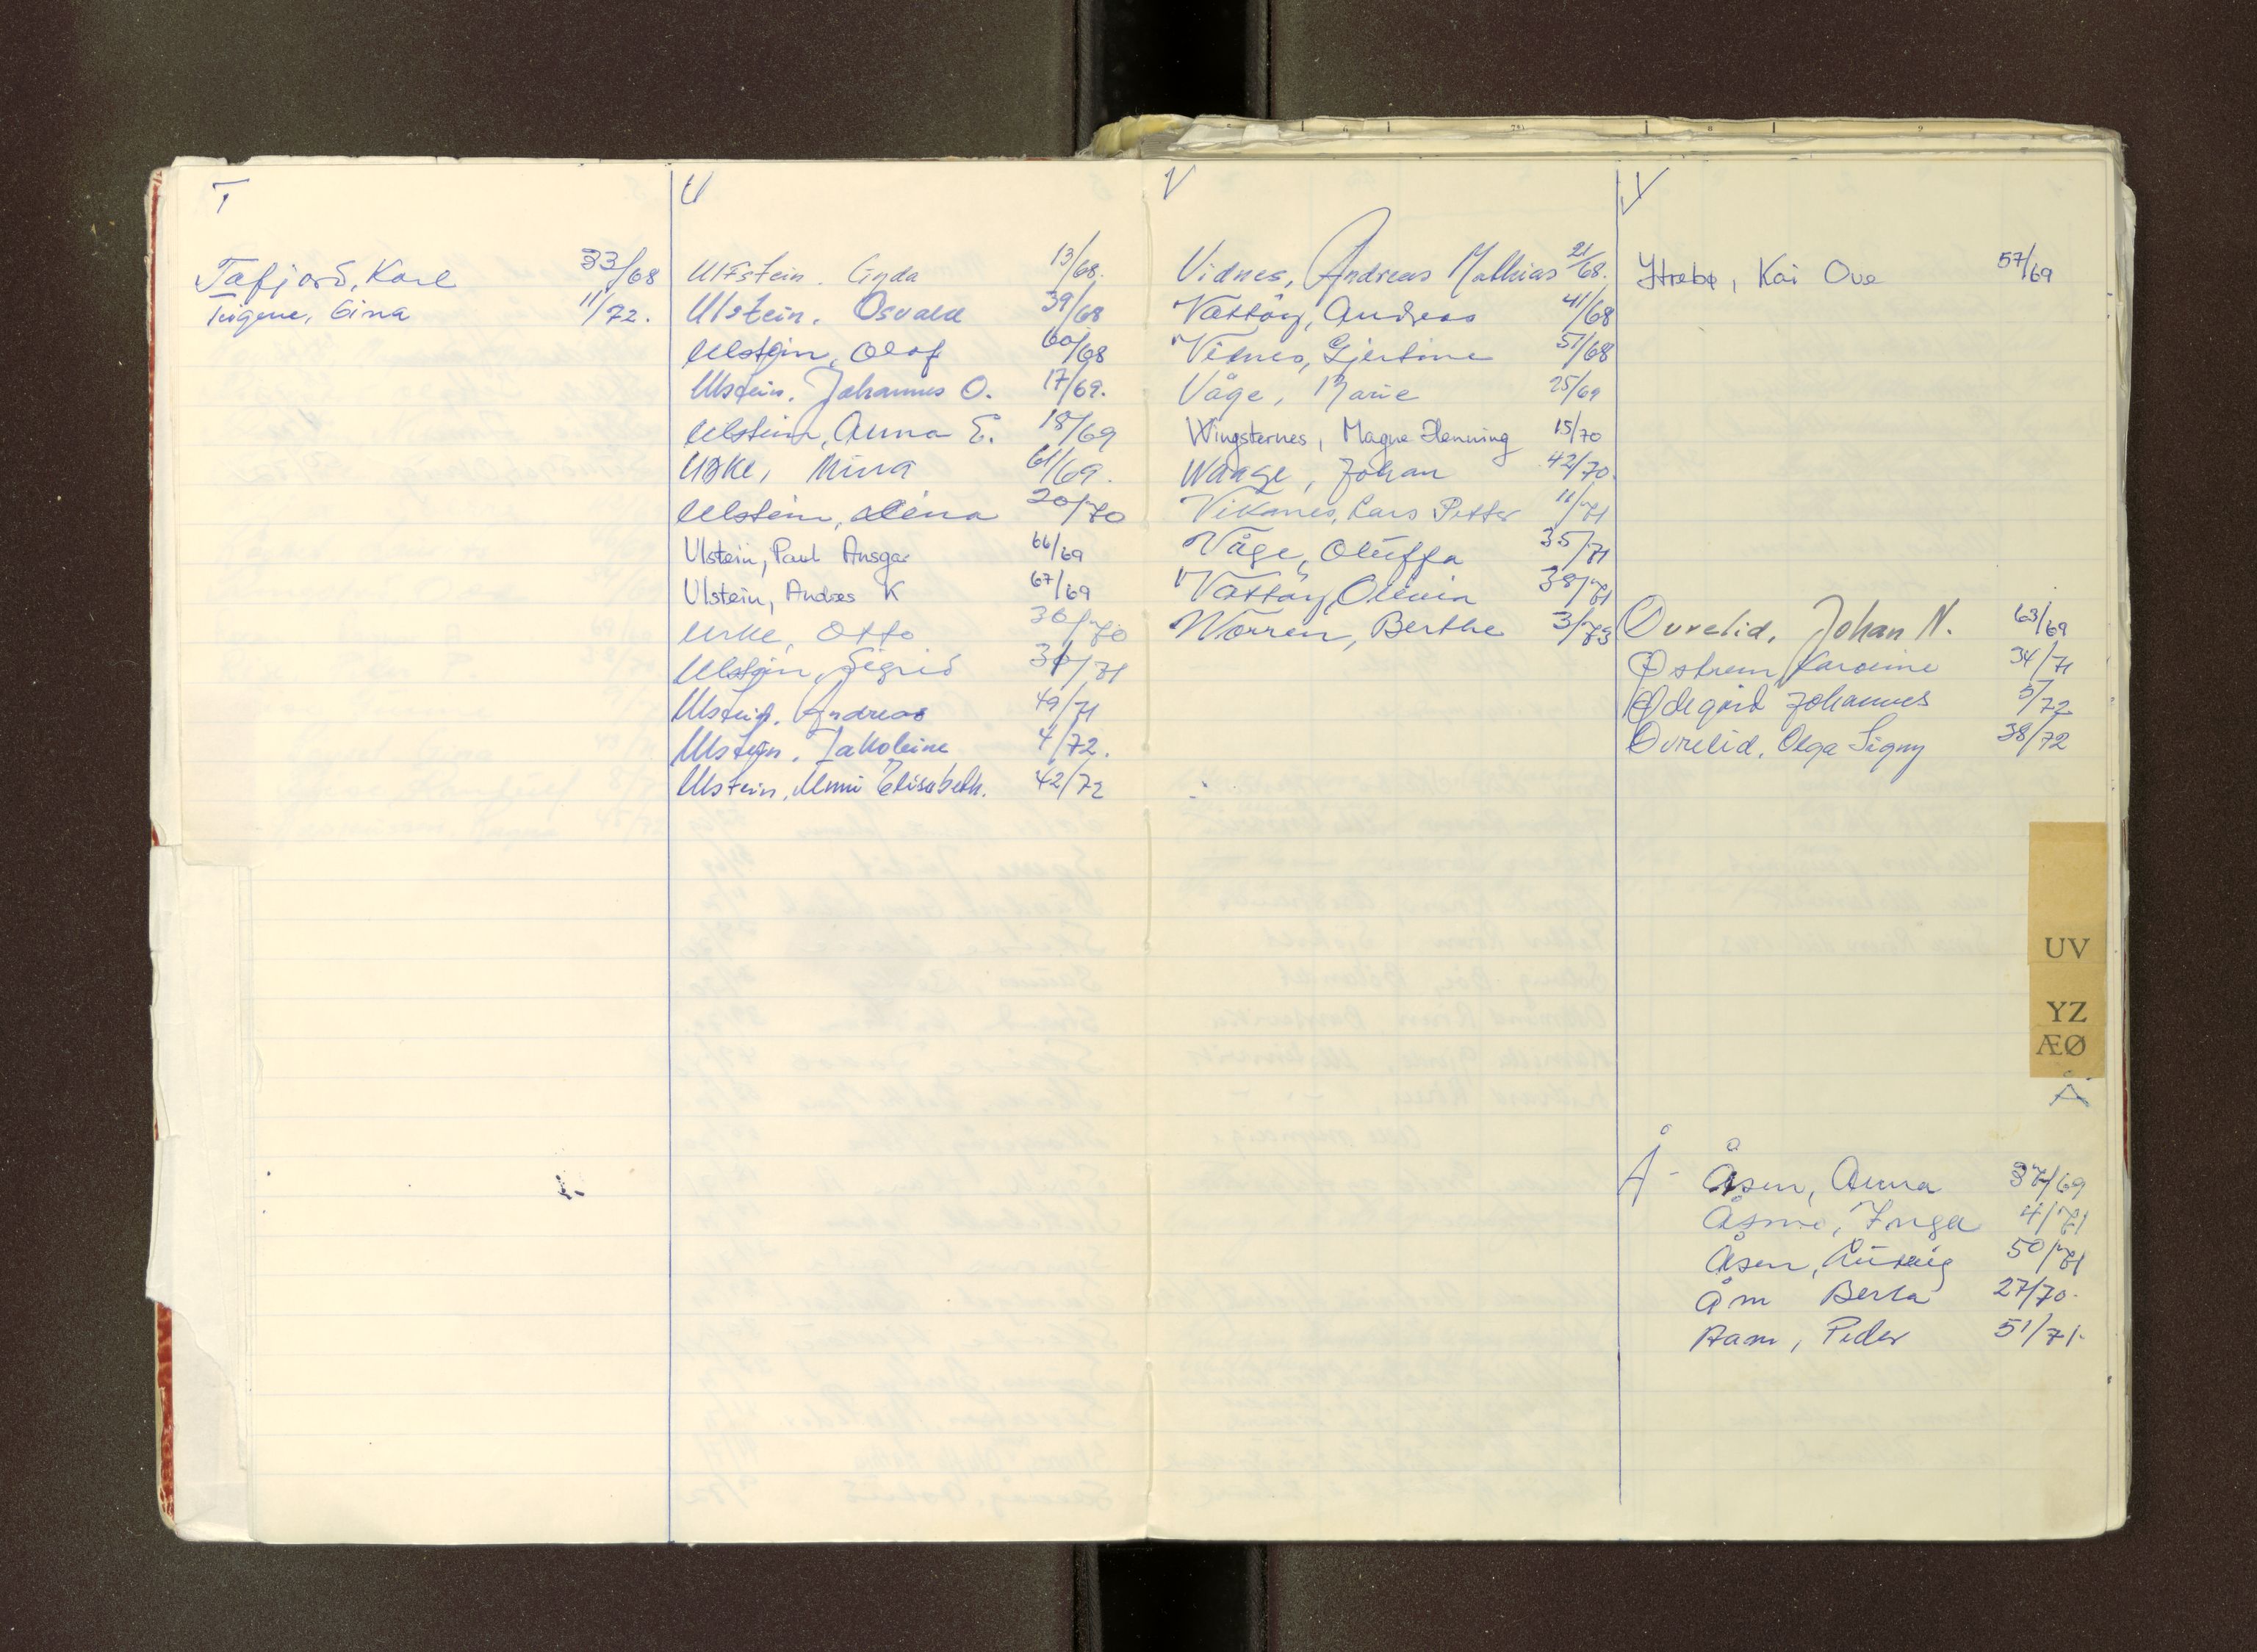 T
Tafjord, Karl 33/68
Tvigene, Gina 11/72.
U
Ulstein. Gyda 13/68.
Ulstein. Osvald 39/68
Ulstein, Olaf 60/68
Ulstein. Johannes O. 17/69.
Ulstein, Anna E. 18/69
Urke, Mina 61/69.
Ulstein, Lina 20/70
Ulstein, Paul Ansgar 66/69
Ulstein, Andres K 67/69
Urke, Otto 36/70
Ulstein, Sigrid 31/71
Ulstein. Andreas 49/71
Ulstein. Jakobine 4/72.
Ulstein, Unni Elisabeth. 42/72
V
Vidnes, Andreas Mathias 21/68.
Vattöy, Andreas 41/68
Vidnes, Gjertine 51/68
Våge, Marie 25/69
Wingsternes, Magne Henning 15/70
Waage, Johan 42/70.
Vikanes, Lars Petter 11/71
Våge, Oluffa 35/71
Vattöy, Olivia 38/71
Worren, Berthe 3/73
Y
Ytrebø, Kai Ove 57/69
Øvrelid, Johan N. 63/69
Østrem, Karoline 34/71
Ødegård Johannes 5/72
Øvrelid, Olga Signy 38/72
UV
YZ
ÆØ
Å
Å - Åsen, Anna 37/69
Åsnes, Inga 4/71
Åsen, Ludvig 50/71
Åm Berta 27/70.
Aam, Peder 51/71.